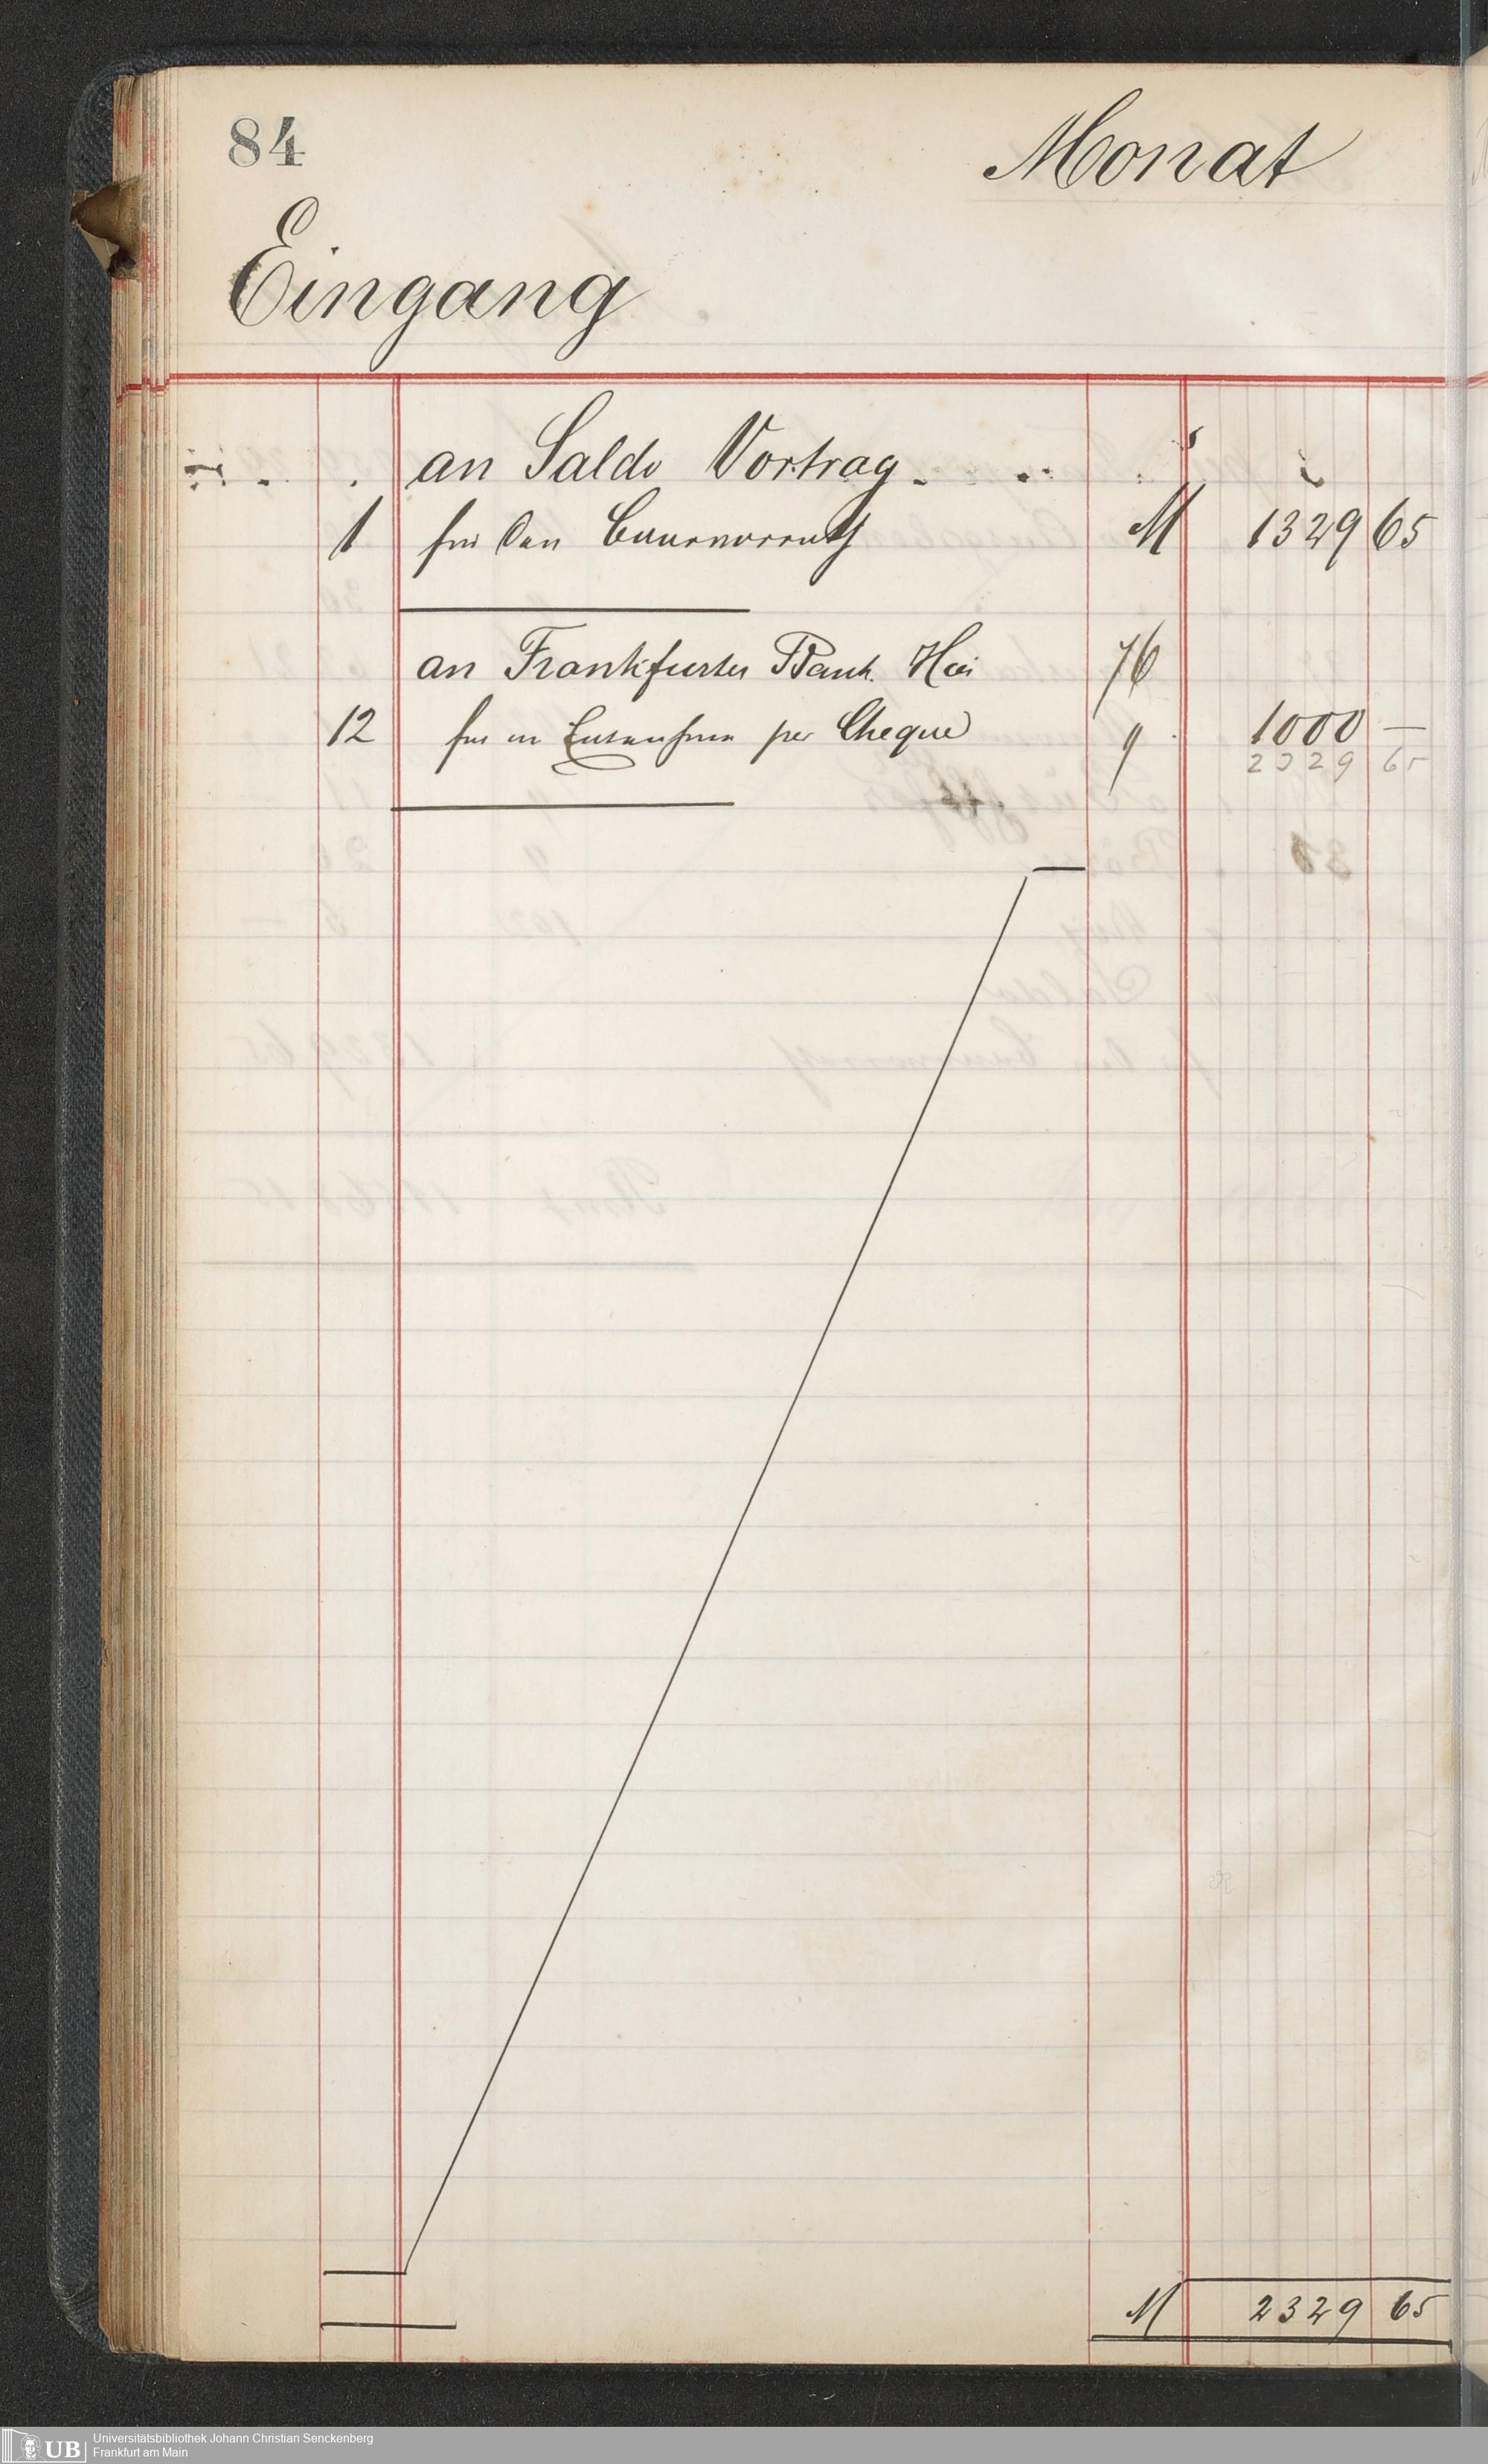 84
Monat
Eingang
an Saldo Vortrag.
1 für den Cassavorrath M 1329 65
an Frankfurter Bank. 76
12 für per Cheque " 1000 —
2329 65
M 2329 65
UB Universitätsbibliothek Johann Christian Senckenberg
Frankfurt am Main